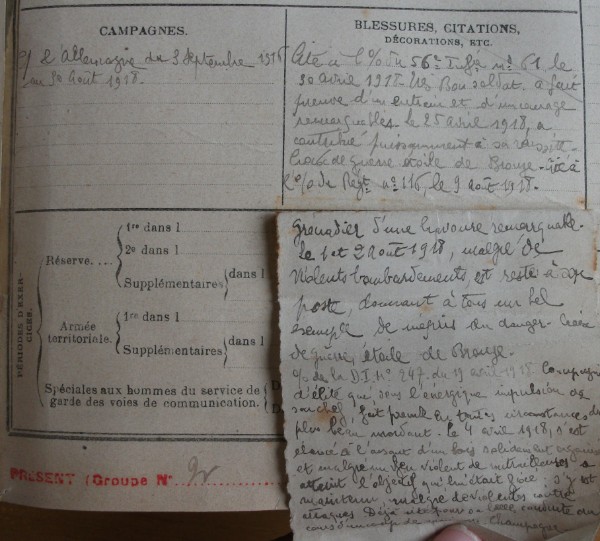 CAMPAGNES.
c/ l'Allemagne du 3 Septembre 1916
au 30 Août 1918.
BLESSURES, CITATIONS,
DÉCORATIONS, ETC.
Cité à l'o/o du 56e Inf. n° 61 le
30 avril 1918. Très Bon soldat. a fait
preuve d'un entrain et d'un courage
remarquables le 25 avril 1918, a
contribué puissamment à sa
Croix de guerre étoile de Bronze. Cité à
l'o/o du Régt n° 116, le 9 août 1918.
Grenadier d'une bravoure remarquable.
le 1 et 2 août 1918, malgré de
violents bombardements, est resté à son
poste, donnant à tous un bel
exemple de mépris du danger. Croix
de guerre, étoile de Bronze.
o/o de la D.I. N° 247. du 19 avril 1918 Compagnie
d'élite qui, sous l'énergique impulsion de
son chef, fait preuve en toutes circonstances du
plus beau mordant. le 4 avril 1918, s'est
élancé à l'assaut d'un bois solidement organisé
et malgré un feu violent de mitrailleuses a
atteint l'objectif qui lui était fixé. s'y est
maintenu malgré de violentes contre
attaques. Déjà belle conduite au
cours Champagne
PÉRIODES D'EXER-
CICES.
Réserve. ...
1re dans l
2e dans l
Supplémentaires
dans l
Armée
territoriale.
1re dans l
Supplémentaires
dans l
Spéciales aux hommes du service de
garde des voies de communication.
PRÉSENT (Groupe N°